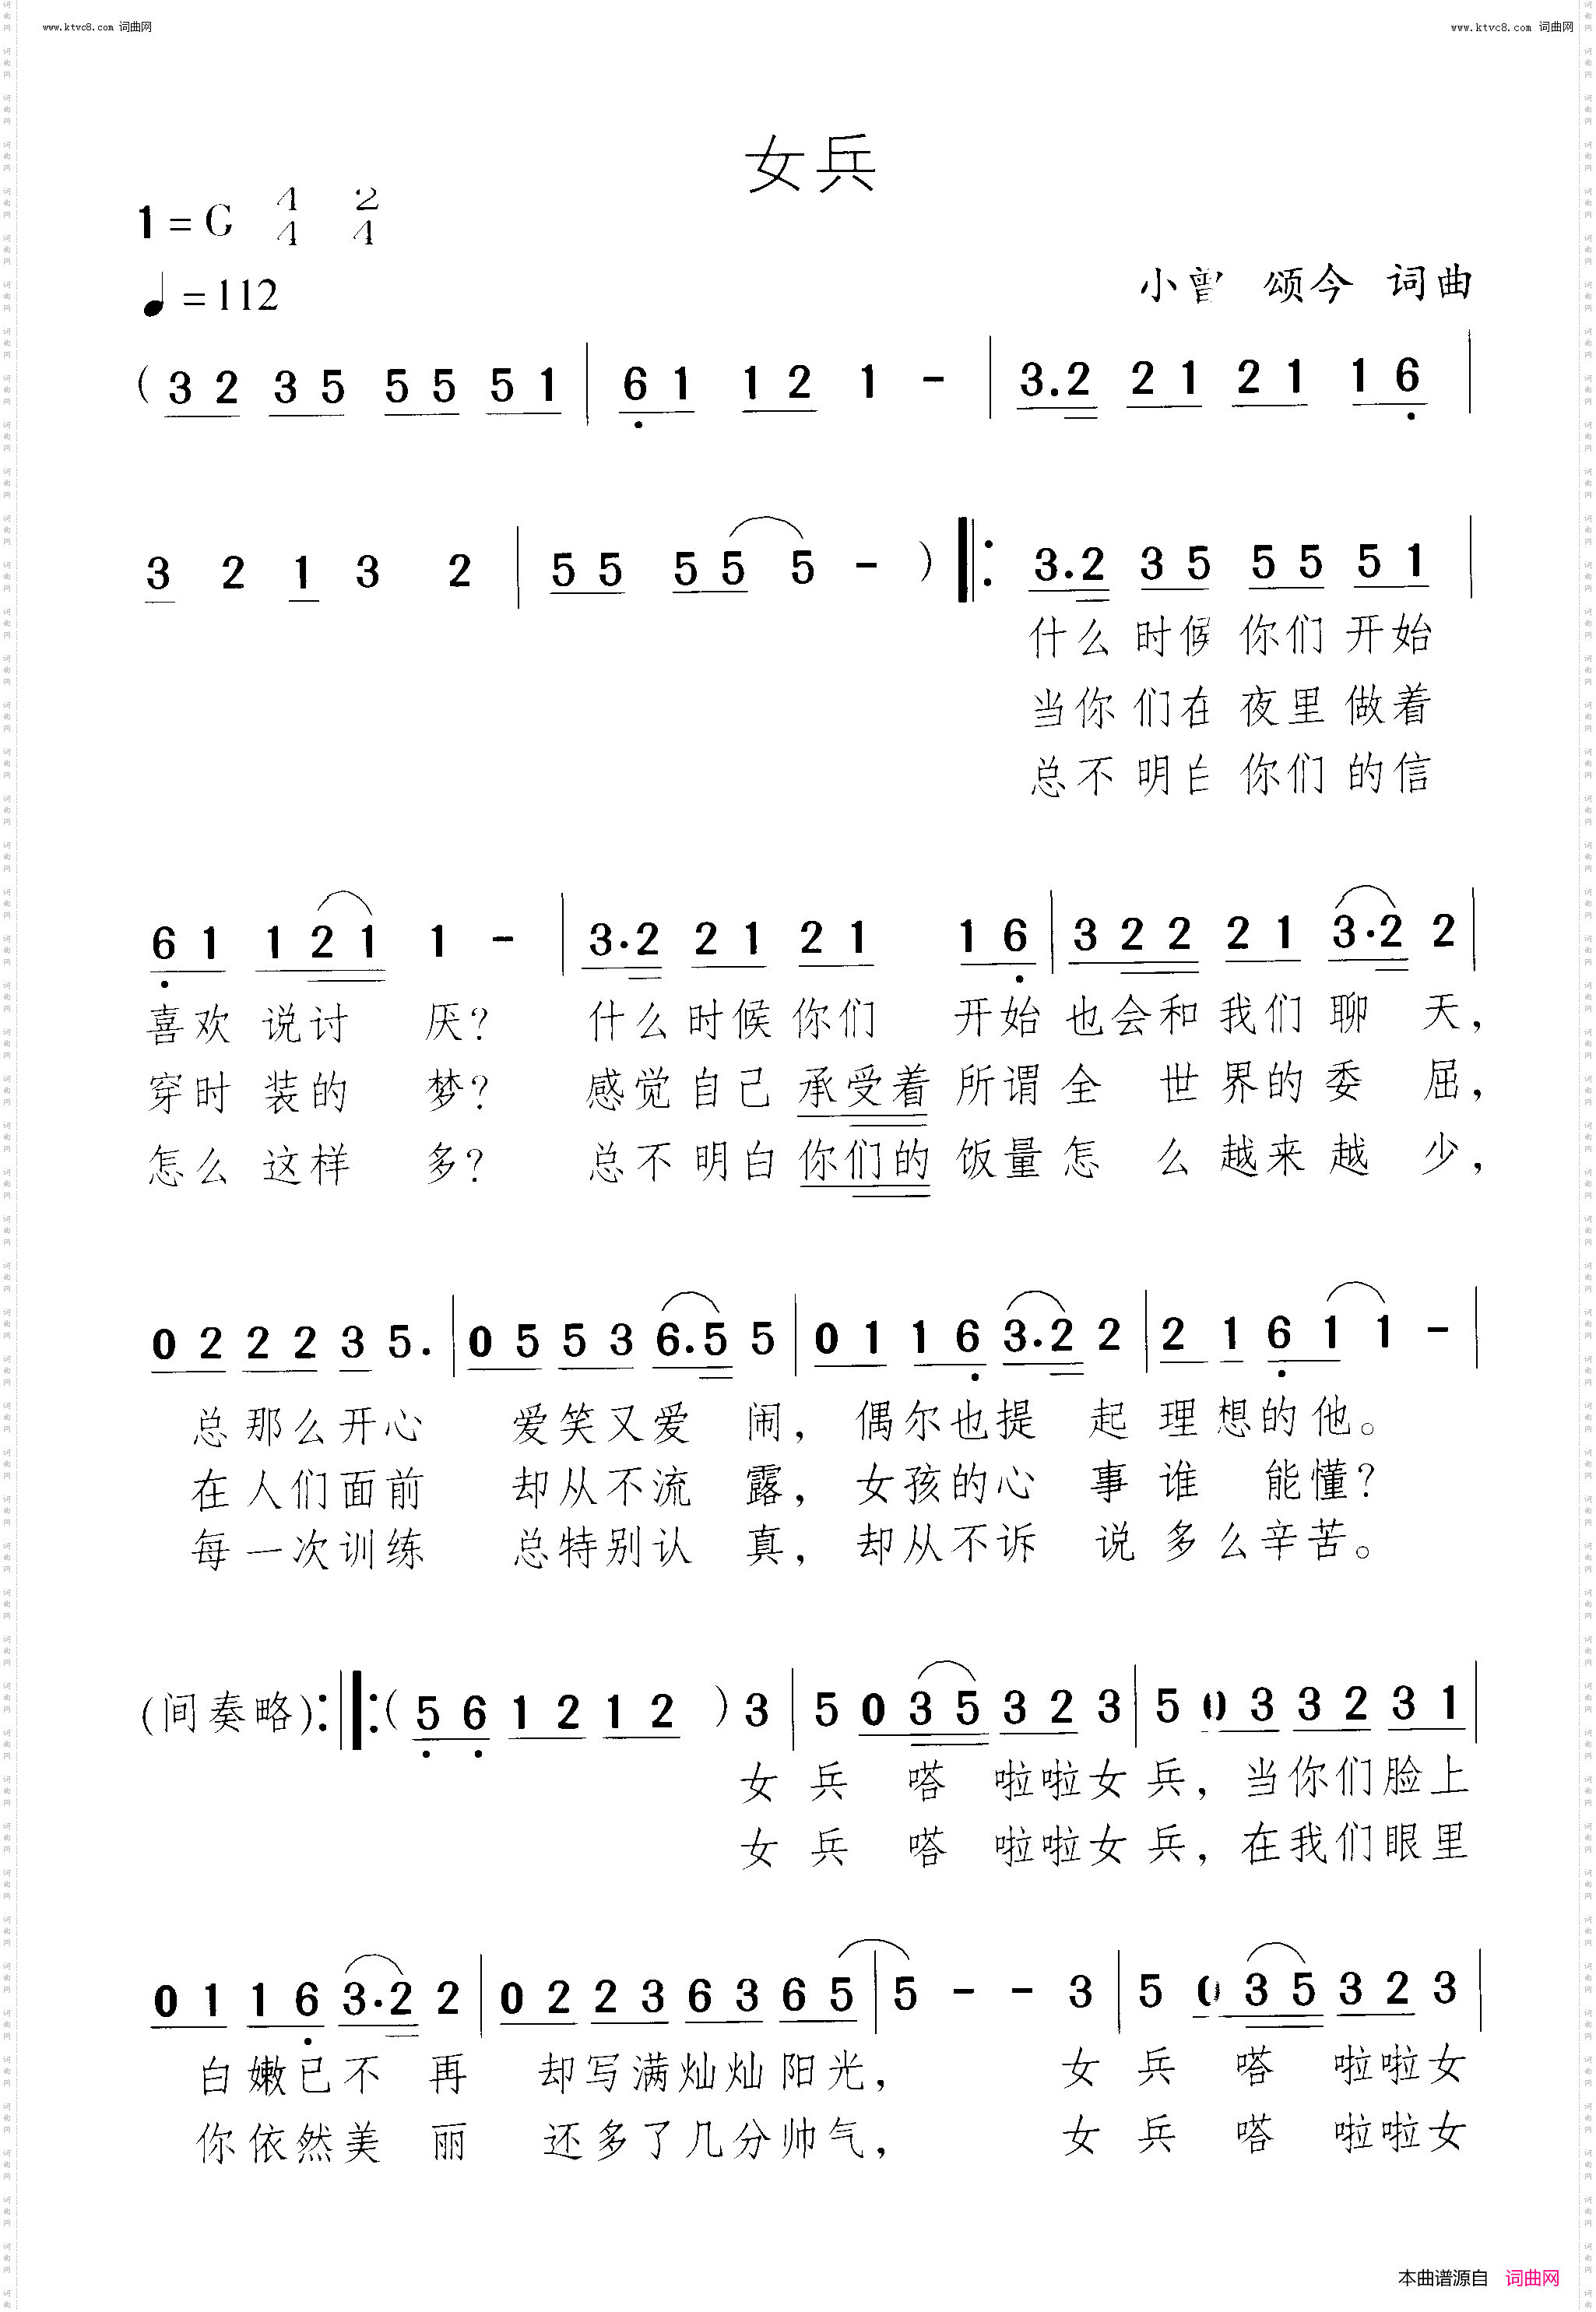 www.ktvc8.com 词曲网 www.ktvc8.com 词曲网
女兵
1 = G 4/4 2/4
♩ = 112
小曾 颂今 词曲
( 3 2 3 5 5 5 5 1 | 6 1 1 2 1 - | 3.2 2 1 2 1 1 6 |
3 2 1 3 2 | 5 5 5 5 5 - ) ‖: 3.2 3 5 5 5 5 1 |
什么 时候 你们 开始
当你 们在 夜里 做着
总不 明白 你们 的信
6 1 1 2 1 1 - | 3.2 2 1 2 1 1 6 | 3 2 2 2 1 3.2 2 |
喜欢 说讨 厌? 什么 时候 你们 开始 也会和 我们 聊 天,
穿时 装的 梦? 感觉 自己 承受着 所谓 全 世界的 委 屈,
怎么 这样 多? 总不 明白 你们的 饭量 怎 么 越来 越 少,
0 2 2 2 3 5. | 0 5 5 3 6.5 5 | 0 1 1 6 3.2 2 | 2 1 6 1 1 - |
总那么开心 爱笑又爱 闹, 偶尔也提 起 理想的他。
在人们面前 却从不流 露, 女孩的心 事谁 能懂?
每一次训练 总特别认 真, 却从不诉 说多么辛苦。
(间奏略) :‖: ( 5 6 1 2 1 2 ) 3 | 5 0 3 5 3 2 3 | 5 0 3 3 2 3 1 |
女 兵 嗒 啦啦女 兵, 当你们脸上
女 兵 嗒 啦啦女 兵, 在我们眼里
0 1 1 6 3.2 2 | 0 2 2 3 6 3 6 5 | 5 - - 3 | 5 0 3 5 3 2 3 |
白嫩已不 再 却写满灿灿阳光, 女 兵 嗒 啦啦女
你依然美 丽 还多了几分帅气, 女 兵 嗒 啦啦女
本曲谱源自 词曲网